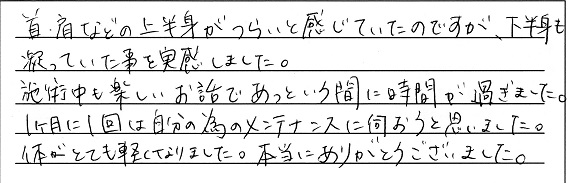 首・肩などの上半身がつらいと感じていたのですが、下半身も
凝っていた事を実感しました。
施術中も楽しいお話であっという間に時間が過ぎました。
1ヶ月に1回は自分の為のメンテナンスに伺おうと思いました。
体がとても軽くなりました。本当にありがとうございました。